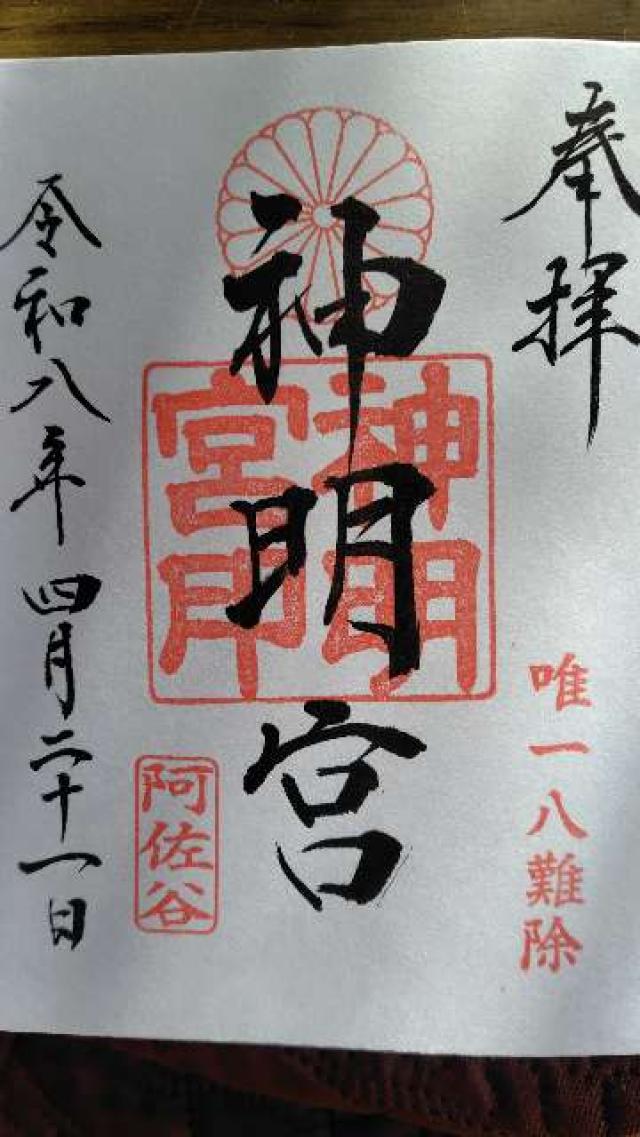 奉拝
唯一八難除
神明宮
神明宮印
阿佐谷
令和八年四月二十一日